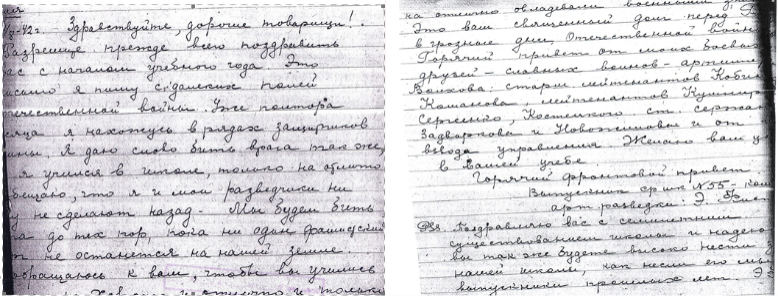 42г. Здравствуйте, дорогие товарищи!
Разрешите прежде всего поздравить
вас с началом учебного года. Это
письмо я пишу с далеких полей
отечественной войны. Уже полтора
я нахожусь в рядах защитников
Я даю слово бить врага так же,
я учился в школе, только на отлично
обещаю, что я и мои разведчики ни
не сделают назад. Мы будем бить
до тех пор, пока ни один фашистский
не останется на нашей земле.
обращаюсь к вам, чтобы вы учились
отлично и только
на отлично овладевали военными
Это ваш священный долг перед
в грозные дни Отечественной войны
Горячий привет от моих боевых
друзей - славных воинов-
Волхова: старш. лейтенантов
Кошанова, лейтенантов
Сергиенко, Костецкого ст.
Задворкова и Новожилова и от
взвода управления. Желаю вам
в вашей учебе.
Горячий фронтовой привет.
Выпускник ср. шк. №55 -
арт. разведки. Э.
Поздравляю вас с семилетним
существованием школы и
вы так же будете высоко нести
нашей школы, как несли его мы
выпускники прошлых лет. Э.